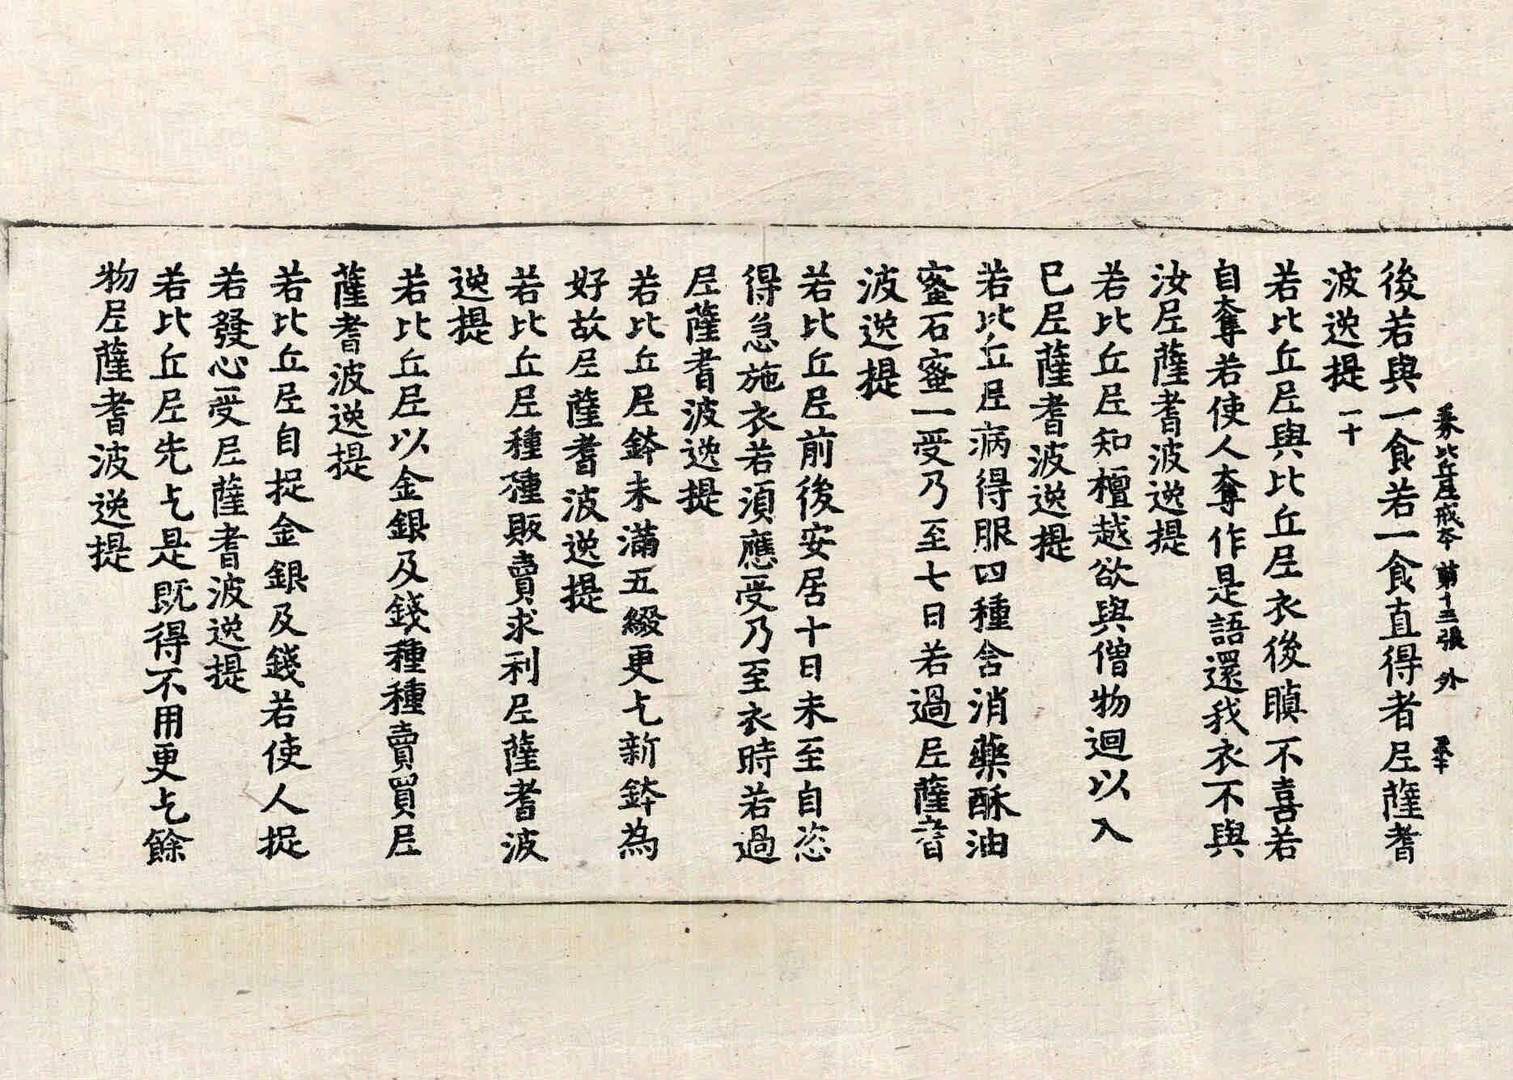 後若與一食若一食直得者𡰱薩耆
波逸提 一十
若比丘𡰱與比丘𡰱衣後瞋不喜若
自奪若使人奪作是語還我衣不與
汝𡰱薩耆波逸提
若比丘𡰱知檀越欲與僧物迴以入
已𡰱薩耆波逸提
若比丘𡰱病得服四種含消藥酥油
蜜石蜜一受乃至七日若過𡰱薩耆
波逸提
若比丘𡰱前後安居十日未至自恣
得急施衣若須應受乃至衣時若過
𡰱薩耆波逸提
若比丘𡰱鉢未滿五綴更乞新鉢為
好故𡰱薩耆波逸提
若比丘𡰱種種販賣求利𡰱薩耆波
逸提
若比丘𡰱以金銀及錢種種賣買𡰱
薩耆波逸提
若比丘𡰱自捉金銀及錢若使人捉
若發心受𡰱薩耆波逸提
若比丘𡰱先乞是既得不用更乞餘
物𡰱薩耆波逸提
比丘𡰱戒本 第十三張 外